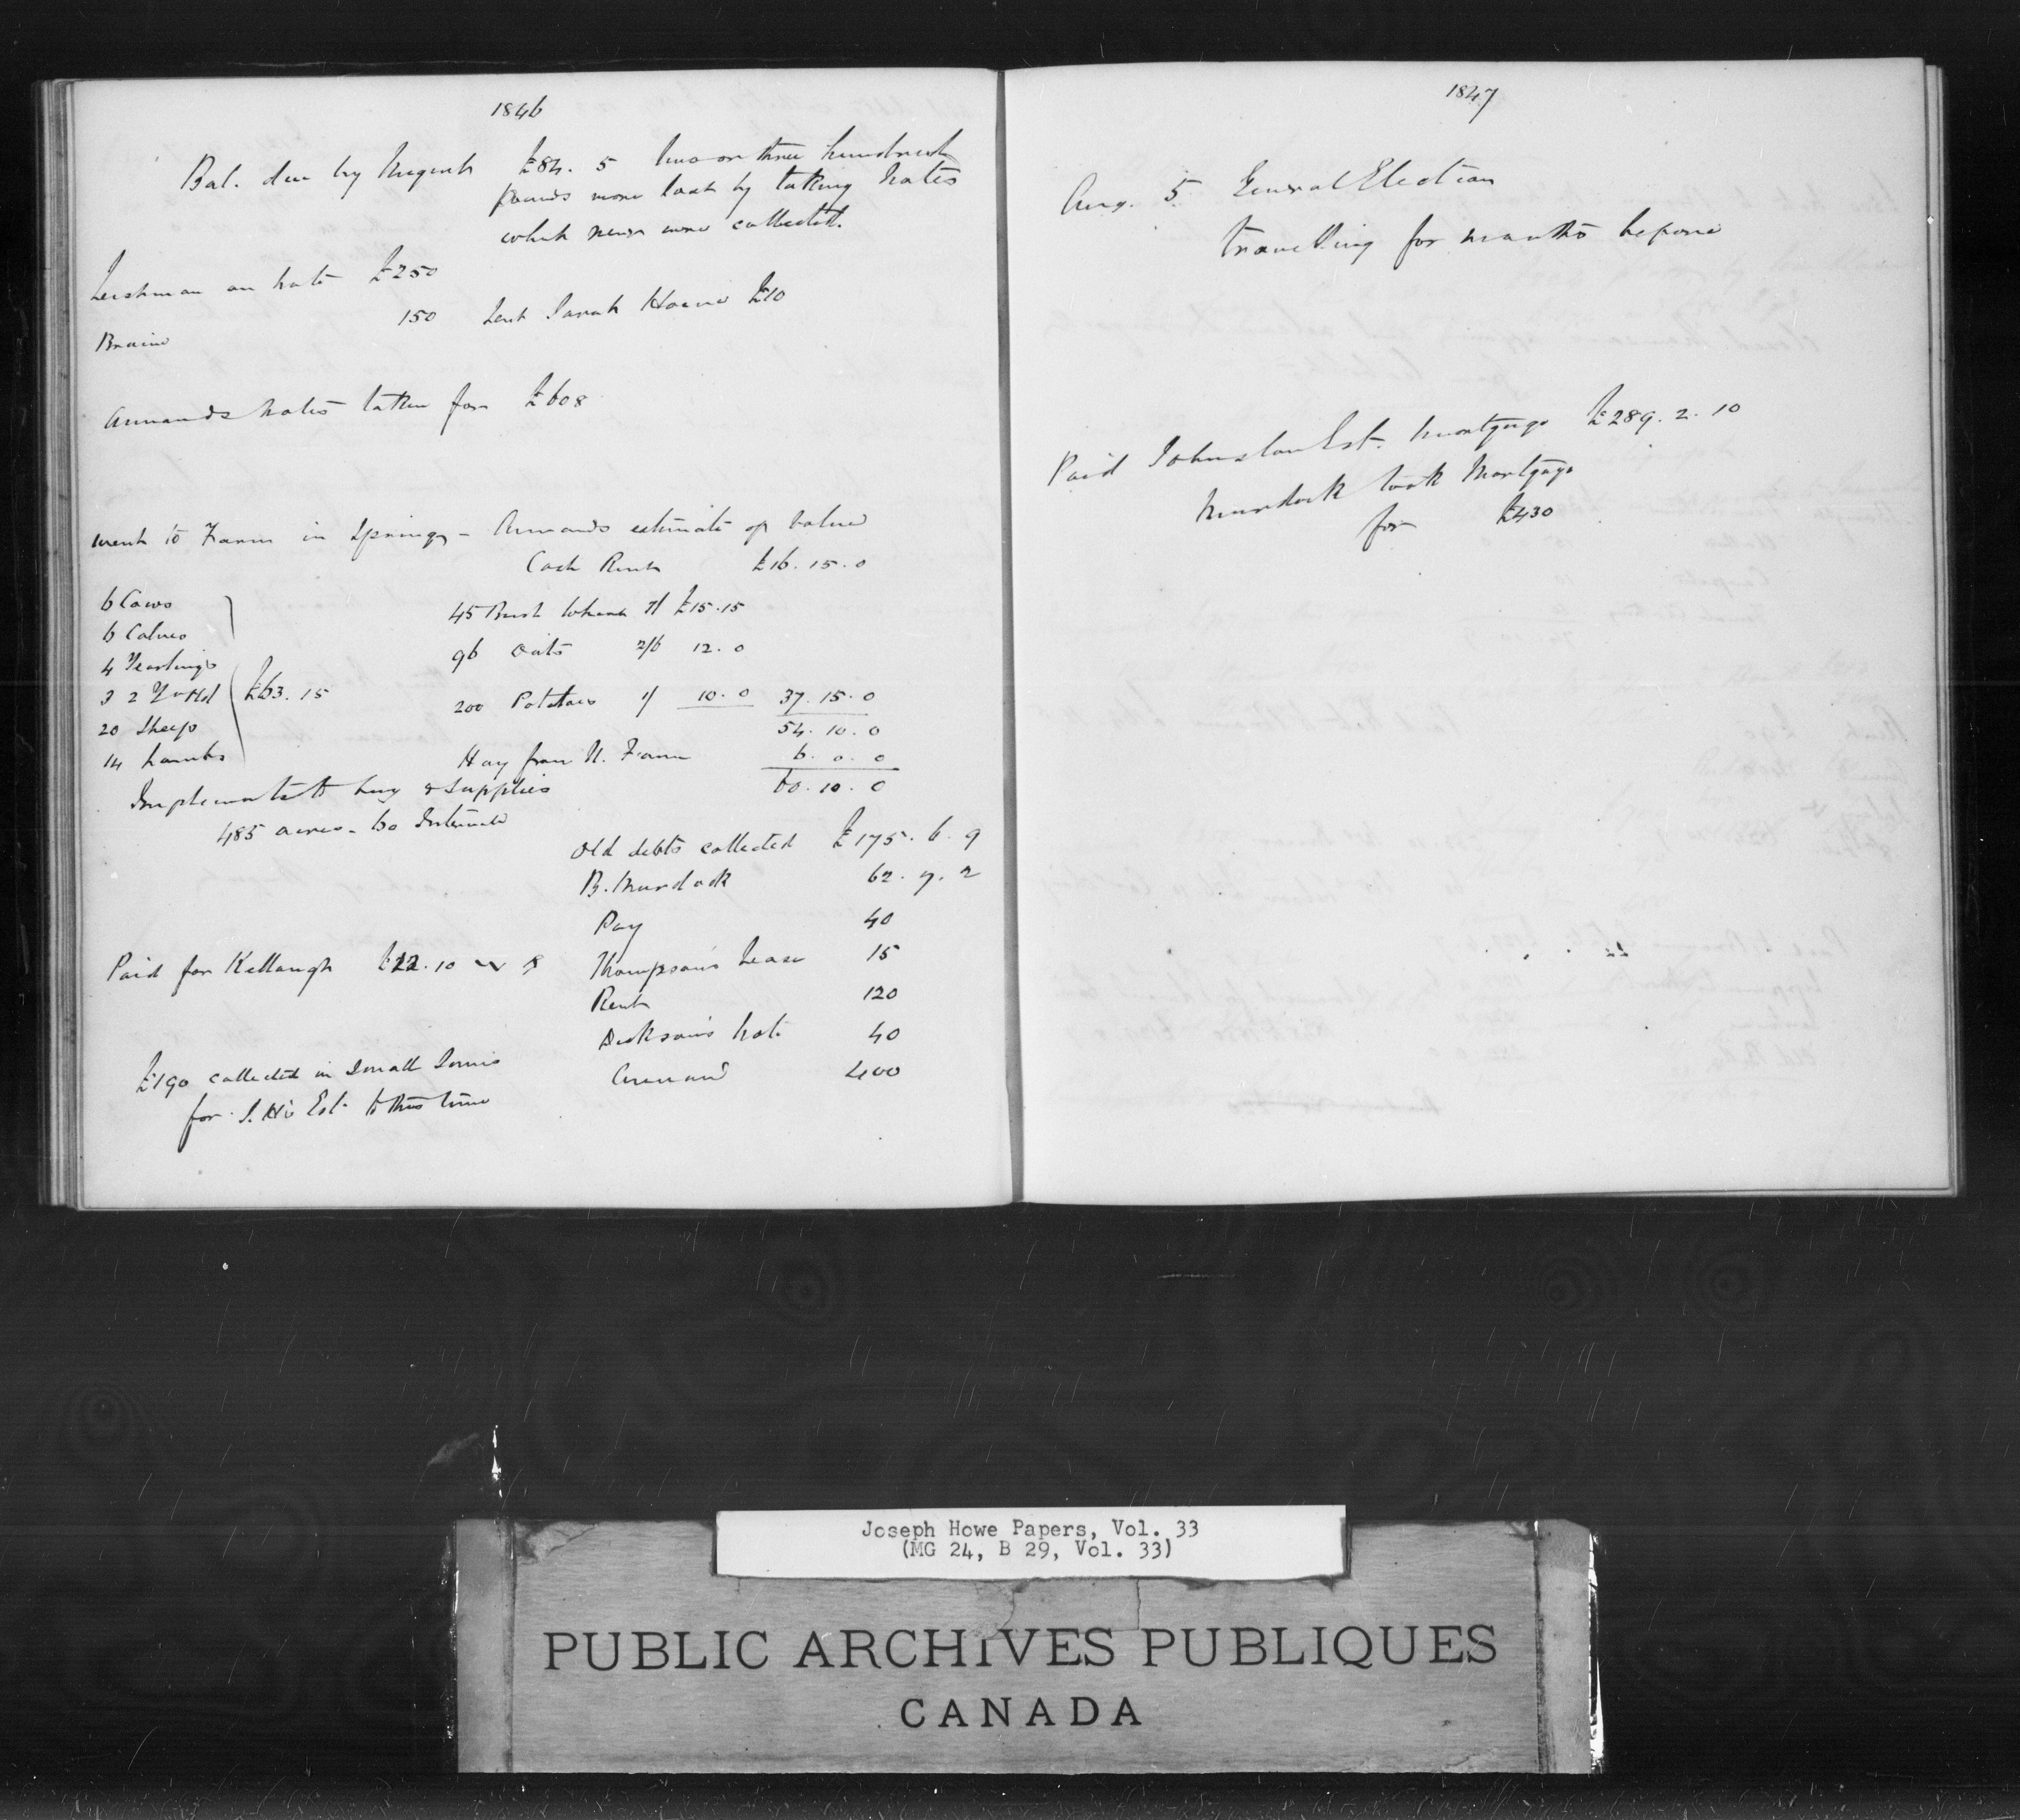 1846
Bal. due by Nugent £84. 5 two or three hundred
pounds more lost by taking Notes
which never were collected.
Leishman on note £250
150 Lent Sarah Howe £10
Braine
Annands Notes taken for £608
went to Farm in Spring - Annands estimate of value
Cash Rent £16. 15. 0
6 Cows
6 Calves
4 Yearlings
3 2 Yr Old £63. 15
20 Sheep
14 Lambs
45 Bush Wheat 7/ £15. 15
96 Oats 2/6 12. 0
200 Potatoes 1/ 10. 0 37. 15. 0
54. 10. 0
Hay from U. Farm 6. 0. 0
60. 10. 0
Implements to buy & Supplies
485 acres - 60 Intervale
Old debts collected £175. 6. 9
B. Murdock 62. 7. 2
Pay 40
Paid for Kellough £22. 10
Thompson's Lease 15
Rent 120
Dickson's Note 40
Annand 400
£190 collected in Small Sums
for J. H's Est. to this time
1847
Aug. 5 General Election
travelling for months before
Paid Johnston Est. Mortgage £289. 2. 10
Murdock took Mortgage
for £430
Joseph Howe Papers, Vol. 33
(MG 24, B 29, Vol. 33)
PUBLIC ARCHIVES PUBLIQUES
CANADA